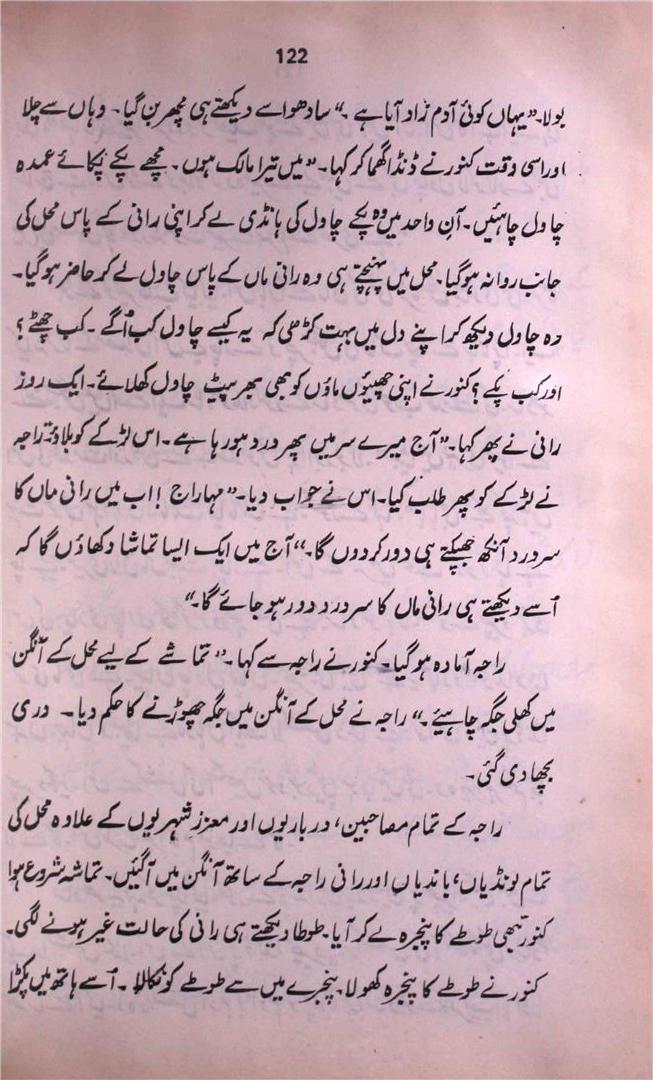 122
بولا۔ ”یہاں کوئی آدم زاد آیا ہے۔“ سادھو اسے دیکھتے ہی مچھر بن گیا۔ وہاں سے چلا
اور اسی وقت کنور نے ڈنڈا گھما کر کہا۔ ”میں تیرا مالک ہوں۔ مجھے پکے پکائے عمدہ
چاول چاہئیں۔ آنِ واحد میں وہ پکے چاول کی ہانڈی لے کر اپنی رانی کے پاس محل کی
جانب روانہ ہو گیا۔ محل میں پہنچتے ہی وہ رانی ماں کے پاس چاول لے کر حاضر ہو گیا۔
وہ چاول دیکھ کر اپنے دل میں بہت کڑھی کہ یہ کیسے چاول کب اُگے۔ کب چھٹے؟
اور کب پکے؟ کنور نے اپنی چھیئوں ماؤں کو بھی بھر پیٹ چاول کھلائے۔ ایک روز
رانی نے پھر کہا۔ ”آج میرے سر میں پھر درد ہو رہا ہے۔ اس لڑکے کو بلاؤ تو راجہ
نے لڑکے کو پھر طلب کیا۔ اس نے جواب دیا۔ ”مہاراج! اب میں رانی ماں کا
سر درد آنکھ جھپکتے ہی دور کردوں گا۔“ آج میں ایک ایسا تماشا دکھاؤں گا کہ
اُسے دیکھتے ہی رانی ماں کا سر درد دور ہو جائے گا۔“
راجہ آمادہ ہو گیا۔ کنور نے راجہ سے کہا۔ ”تماشے کے لیے محل کے آنگن
میں کھلی جگہ چاہیئے۔“ راجہ نے محل کے آنگن میں جگہ چھوڑنے کا حکم دیا۔ دری
بچھا دی گئی۔
راجہ کے تمام مصاحبین، درباریوں اور معزز شہریوں کے علاوہ محل کی
تمام لونڈیاں، باندیاں اور رانی راجہ کے ساتھ آنگن میں آگئیں۔ تماشہ شروع ہوا
کنور تبھی طوطے کا پنجرہ لے کر آیا۔ طوطا دیکھتے ہی رانی کی حالت غیر ہونے لگی۔
کنور نے طوطے کا پنجرہ کھولا۔ پنجرے میں سے طوطے کو نکالا۔ اُسے ہاتھ میں پکڑا